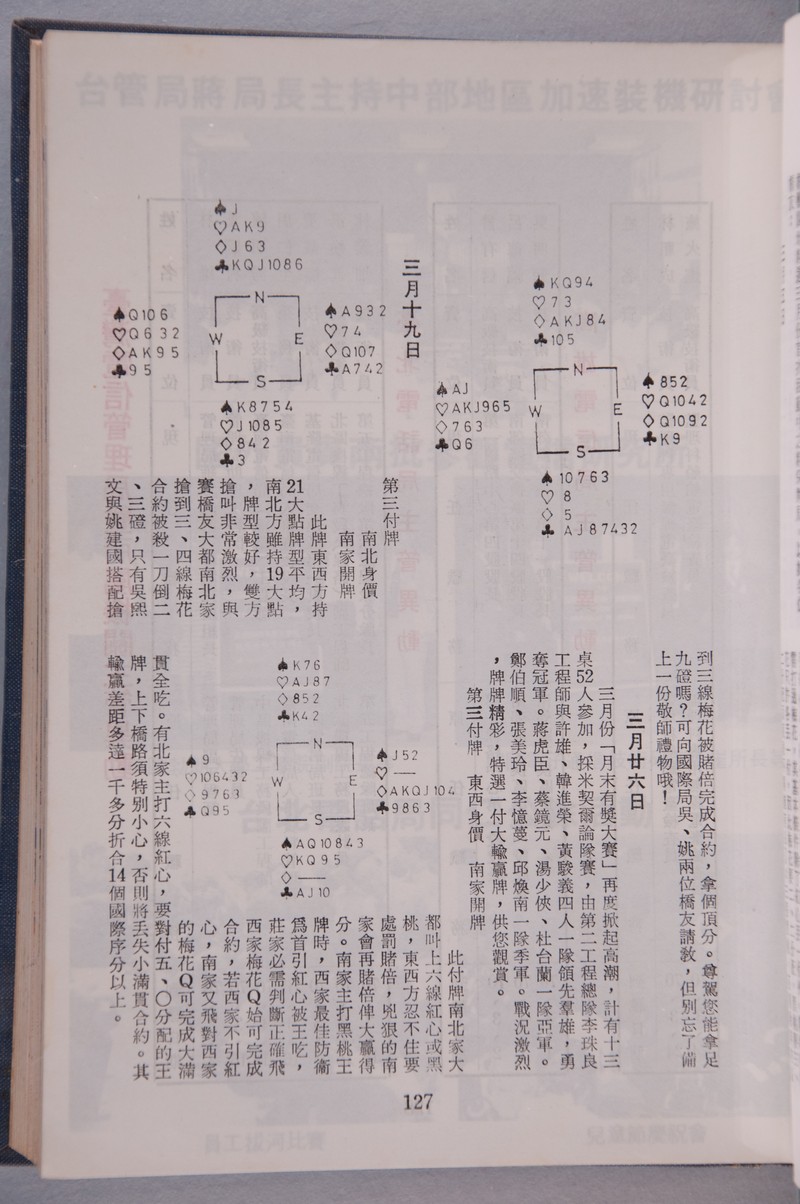 ♠KQ94
♡73
◇AKJ84
♣105
♠AJ
♡AKJ965
◇763
♣Q6
N
W E
S
♠852
♡Q1042
◇Q1092
♣K9
♠10763
♡8
◇5
♣AJ87432
三月十九日
♠J
♡AK9
◇J63
♣KQJ1086
♠Q106
♡Q632
◇AK95
♣95
N
W E
S
♠A932
♡74
◇Q107
♣A742
♠K8754
♡J1085
◇842
♣3
第三付牌
南北身價
南家開牌
此牌東西方持
21大點牌型平均，
南北方雖持19大點
，牌型較好，雙方
搶叫非常激烈，與
賽橋友大都南北家
搶到三、四線梅花
合約被殺一刀倒二
、三磴，只有吳熙
文與姚建國搭配搶
到三線梅花被賭倍完成合約，拿個頂分。尊駕您能拿足
九磴嗎？可向國際局吳、姚兩位橋友請教，但別忘了備
上一份敬師禮物哦！
三月廿六日
三月份「月末有獎大賽」再度掀起高潮，計有十三
桌52人參加，採米契爾論隊賽，由第二工程總隊李珠良
工程師與許雄、韓進榮、黃駿義四人一隊領先羣雄，勇
奪冠軍。蔣虎臣、蔡鏡元、湯少俠、杜台蘭一隊亞軍。
鄭伯順、張美玲、李憶蔓、邱煥南一隊季軍。戰況激烈
，牌牌精彩，特選一付大輸贏牌，供您觀賞。
第三付牌　東西身價　南家開牌
♠K76
♡AJ87
◇852
♣K42
♠9
♡106432
◇9763
♣Q95
N
W E
S
♠J52
♡—
◇AKQJ104
♣9863
♠AQ10843
♡KQ95
◇—
♣AJ10
此付牌南北家大
都叫上六線紅心或黑
桃，東西方忍不住要
處罰賭倍，兇狠的南
家會再賭倍俾大贏得
分。南家主打黑桃王
牌時，西家最佳防衞
爲首引紅心被王吃，
莊家必需判斷正確飛
西家梅花Q始可完成
合約，若西家不引紅
心，南家又飛對西家
的梅花Q可完成大滿
貫全吃。有北家主打六線紅心，要對付五、○分配的王
牌，上下橋路須特別小心，否則將丟失小滿貫合約。其
輸贏差距多達一千多分折合14個國際序分以上。
127